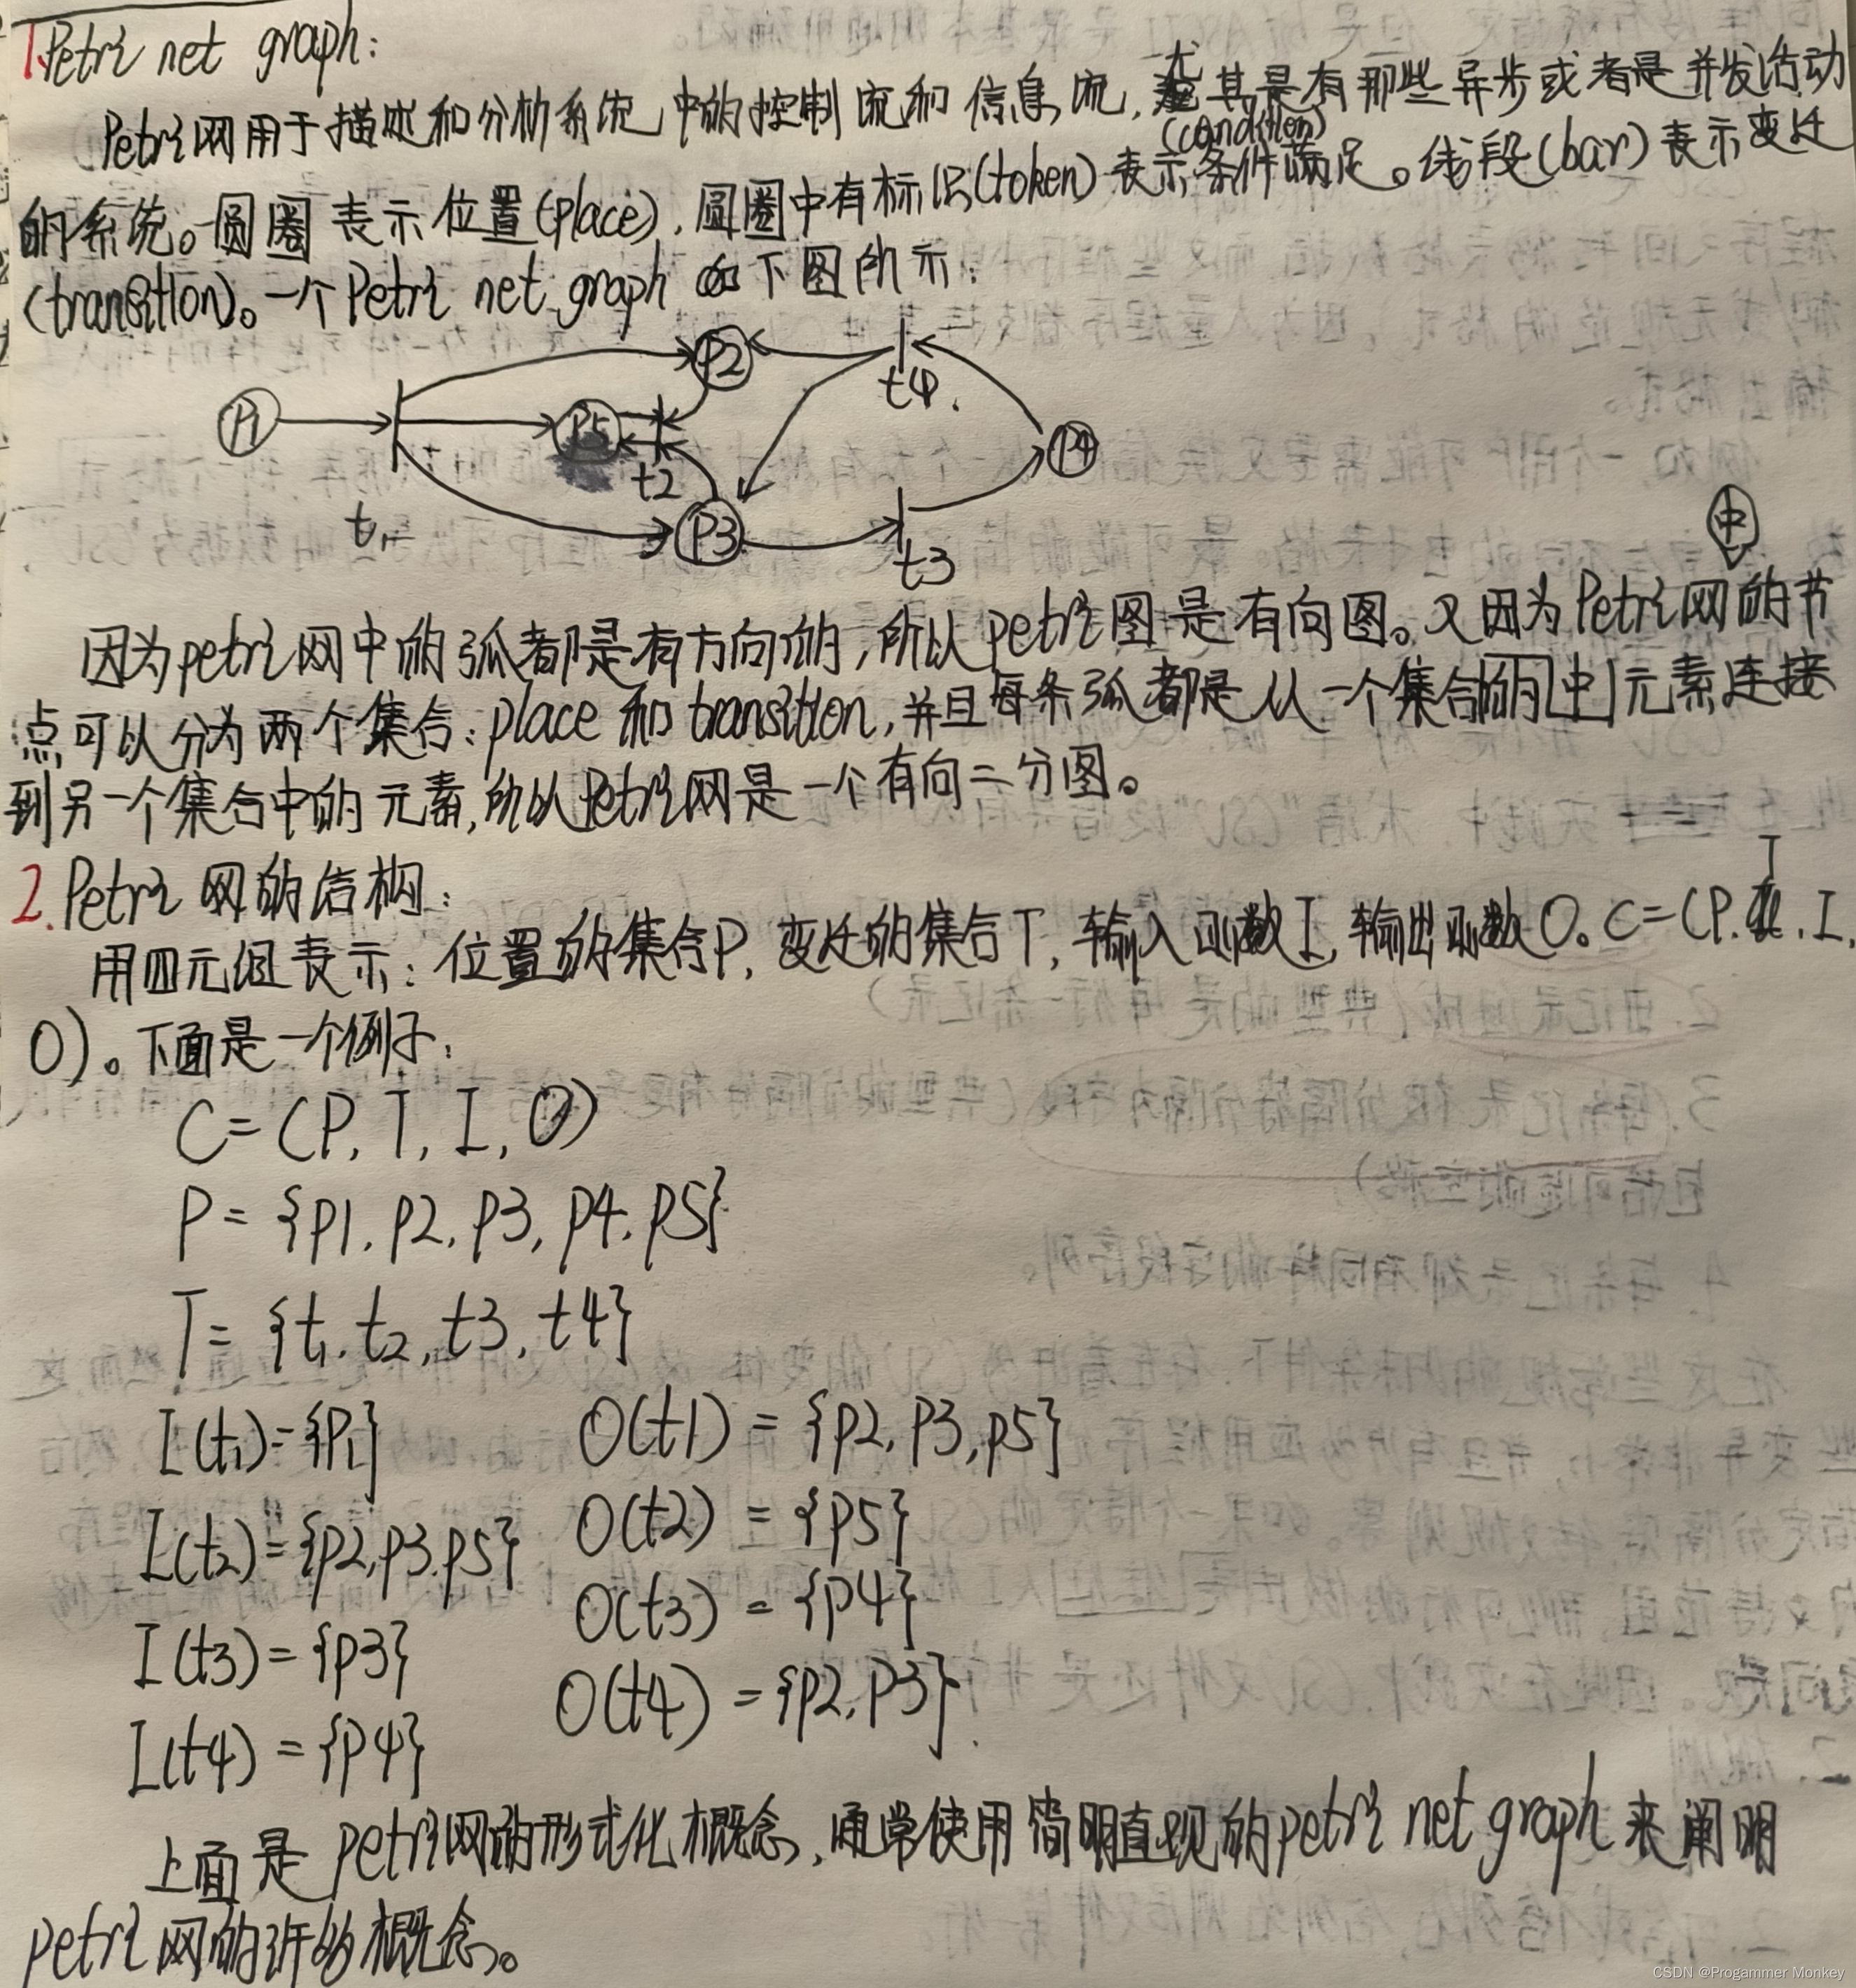 1.Petri net graph:
Petri网用于描述和分析系统中的控制流和信息流,尤其是有那些异步或者是并发活动
的系统。圆圈表示位置(place),圆圈中有标识(token)表示条件(condition)满足。线段(bar)表示变迁
(transition)。一个Petri net graph如下图所示:
P2
t4.
P1
P5
P4
t2
t1
P3
t3
中
因为petri网中的弧都是有方向的,所以petri图是有向图。又因为Petri网的节
点可以分为两个集合:place和transition,并且每条弧都是从一个集合的中元素连接
到另一个集合中的元素,所以Petri网是一个有向二分图。
2.Petri网的结构:
用四元组表示:位置的集合P,变迁的集合T,输入函数I,输出函数O。C=(P,T,I,
O)。下面是一个例子:
C=(P,T,I,O)
P={p1,p2,p3,p4,p5}
T={t1,t2,t3,t4}
I(t1)={P1} O(t1)={p2,p3,p5}
I(t2)={p2,p3,p5} O(t2)={p5}
I(t3)={p3} O(t3)={p4}
I(t4)={p4} O(t4)={p2,p3}.
上面是petri网的形式化概念,通常使用简明直观的petri net graph来阐明
petri网的许多概念。
CSDN @Progammer Monkey